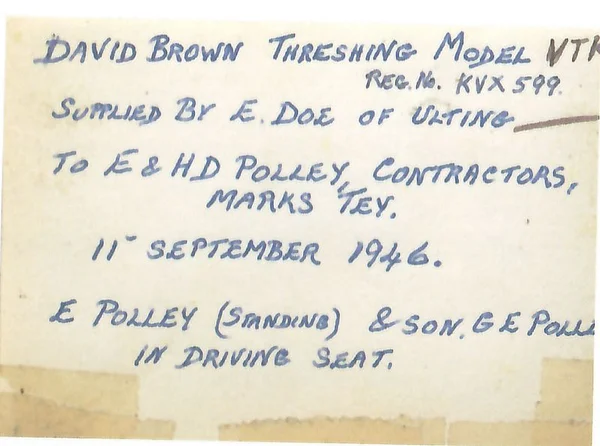 DAVID BROWN THRESHING MODEL VTK
REG. No. KVX 599.
SUPPLIED BY E. DOE OF ULTING
TO E & H D POLLEY, CONTRACTORS,
MARKS TEY.
11 SEPTEMBER 1946.
E POLLEY (STANDING) & SON. G E POLLE
IN DRIVING SEAT.